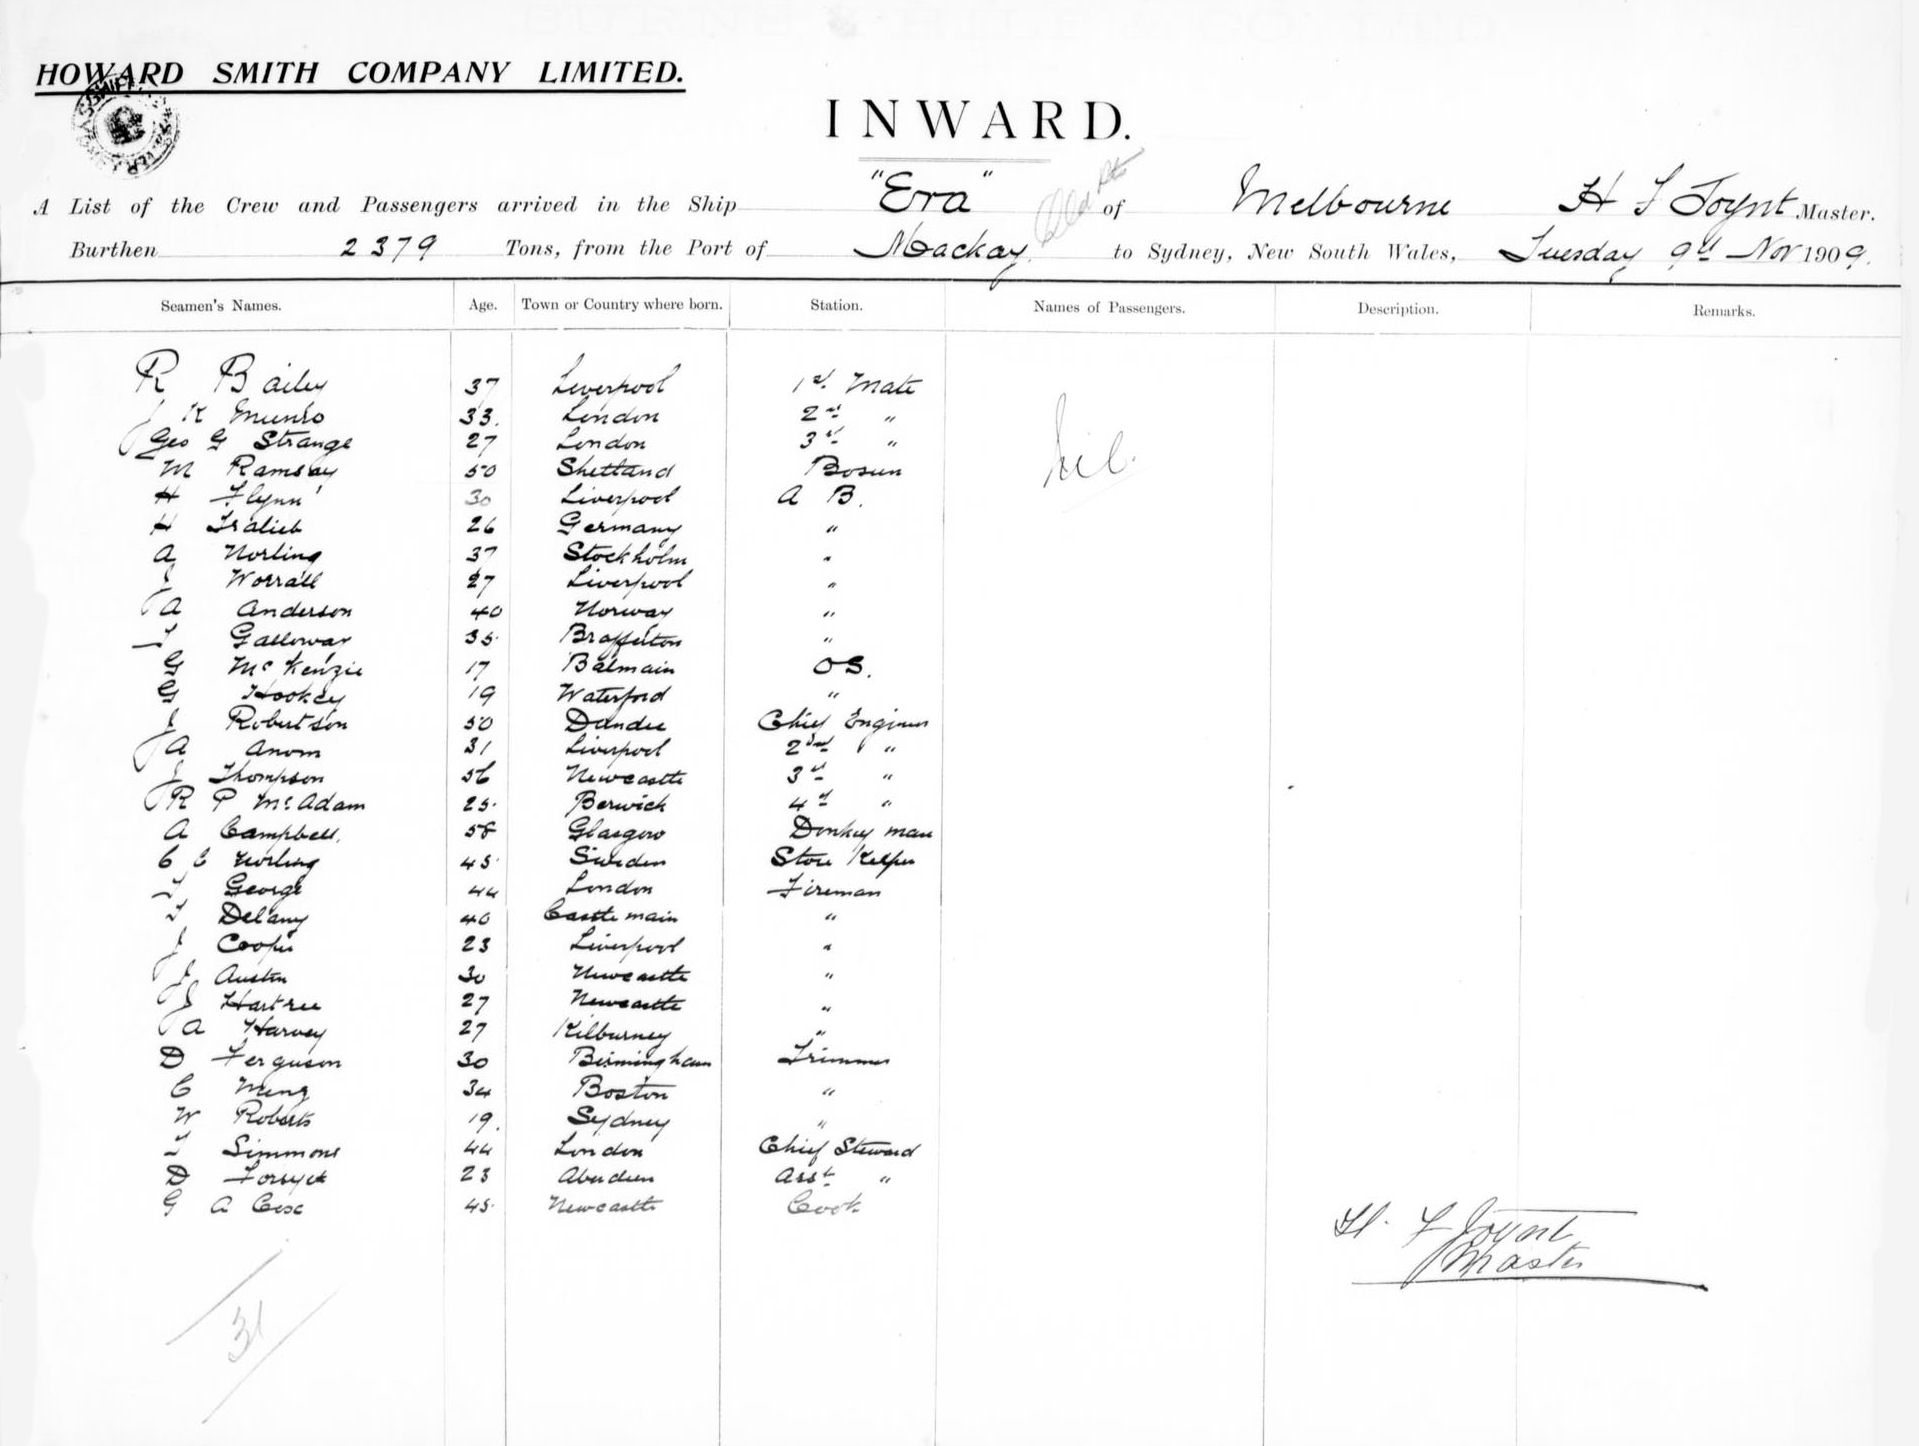 HOWARD SMITH COMPANY LIMITED.
INWARD.
A List of the Crew and Passengers arrived in the Ship "Era" of Melbourne H F Joynt Master.
Burthen 2379 Tons, from the Port of Mackay to Sydney, New South Wales, Tuesday 9th Nov 1909.
Seamen's Names. Age. Town or Country where born. Station. Names of Passengers. Description. Remarks.
R Bailey 37 Liverpool 1st Mate
J K Munro 33. London 2nd "
Geo G Strange 27 London 3rd " Nil.
M Ramsay 50 Shetland Bosun
H Flynn 30 Liverpool A B.
H 26 Germany "
A Norling 37 Stockholm "
J Worrall 27 Liverpool "
A Anderson 40 Norway "
T Galloway 35 Brafferton "
G McKenzie 17 Balmain OS.
G Hookey 19 Waterford "
J Robertson 50 Dundee Chief Engineer
A Anom 31 Liverpool 2nd "
J Thompson 56 Newcastle 3rd "
R P McAdam 25 Berwick 4th "
A Campbell. 58 Glasgow Donkey man
C Norling 45 Sweden Store Keeper
T George 44 London Fireman
T Delany 40 Castlemain "
J Cooper 23 Liverpool "
J Austin 30 Newcastle "
J Hartree 27 Newcastle "
A Harvey 27 Kilburney "
D Ferguson 30 Birmingham Trimmer
C Meng 34 Boston "
W Roberts 19. Sydney "
T Simmons 44 London Chief Steward
D Forsyth 23 Aberdeen Asst "
G A 45 Newcastle Cook
H. F Joynt
Master
31